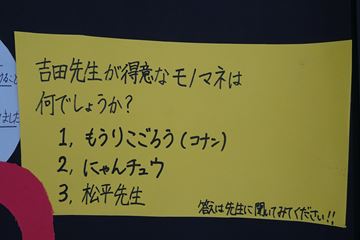 吉田先生が得意なモノマネは
何でしょうか?
1, もうりこごろう(コナン)
2, にゃんチュウ
3, 松平先生
答えは先生に聞いてみてください!!